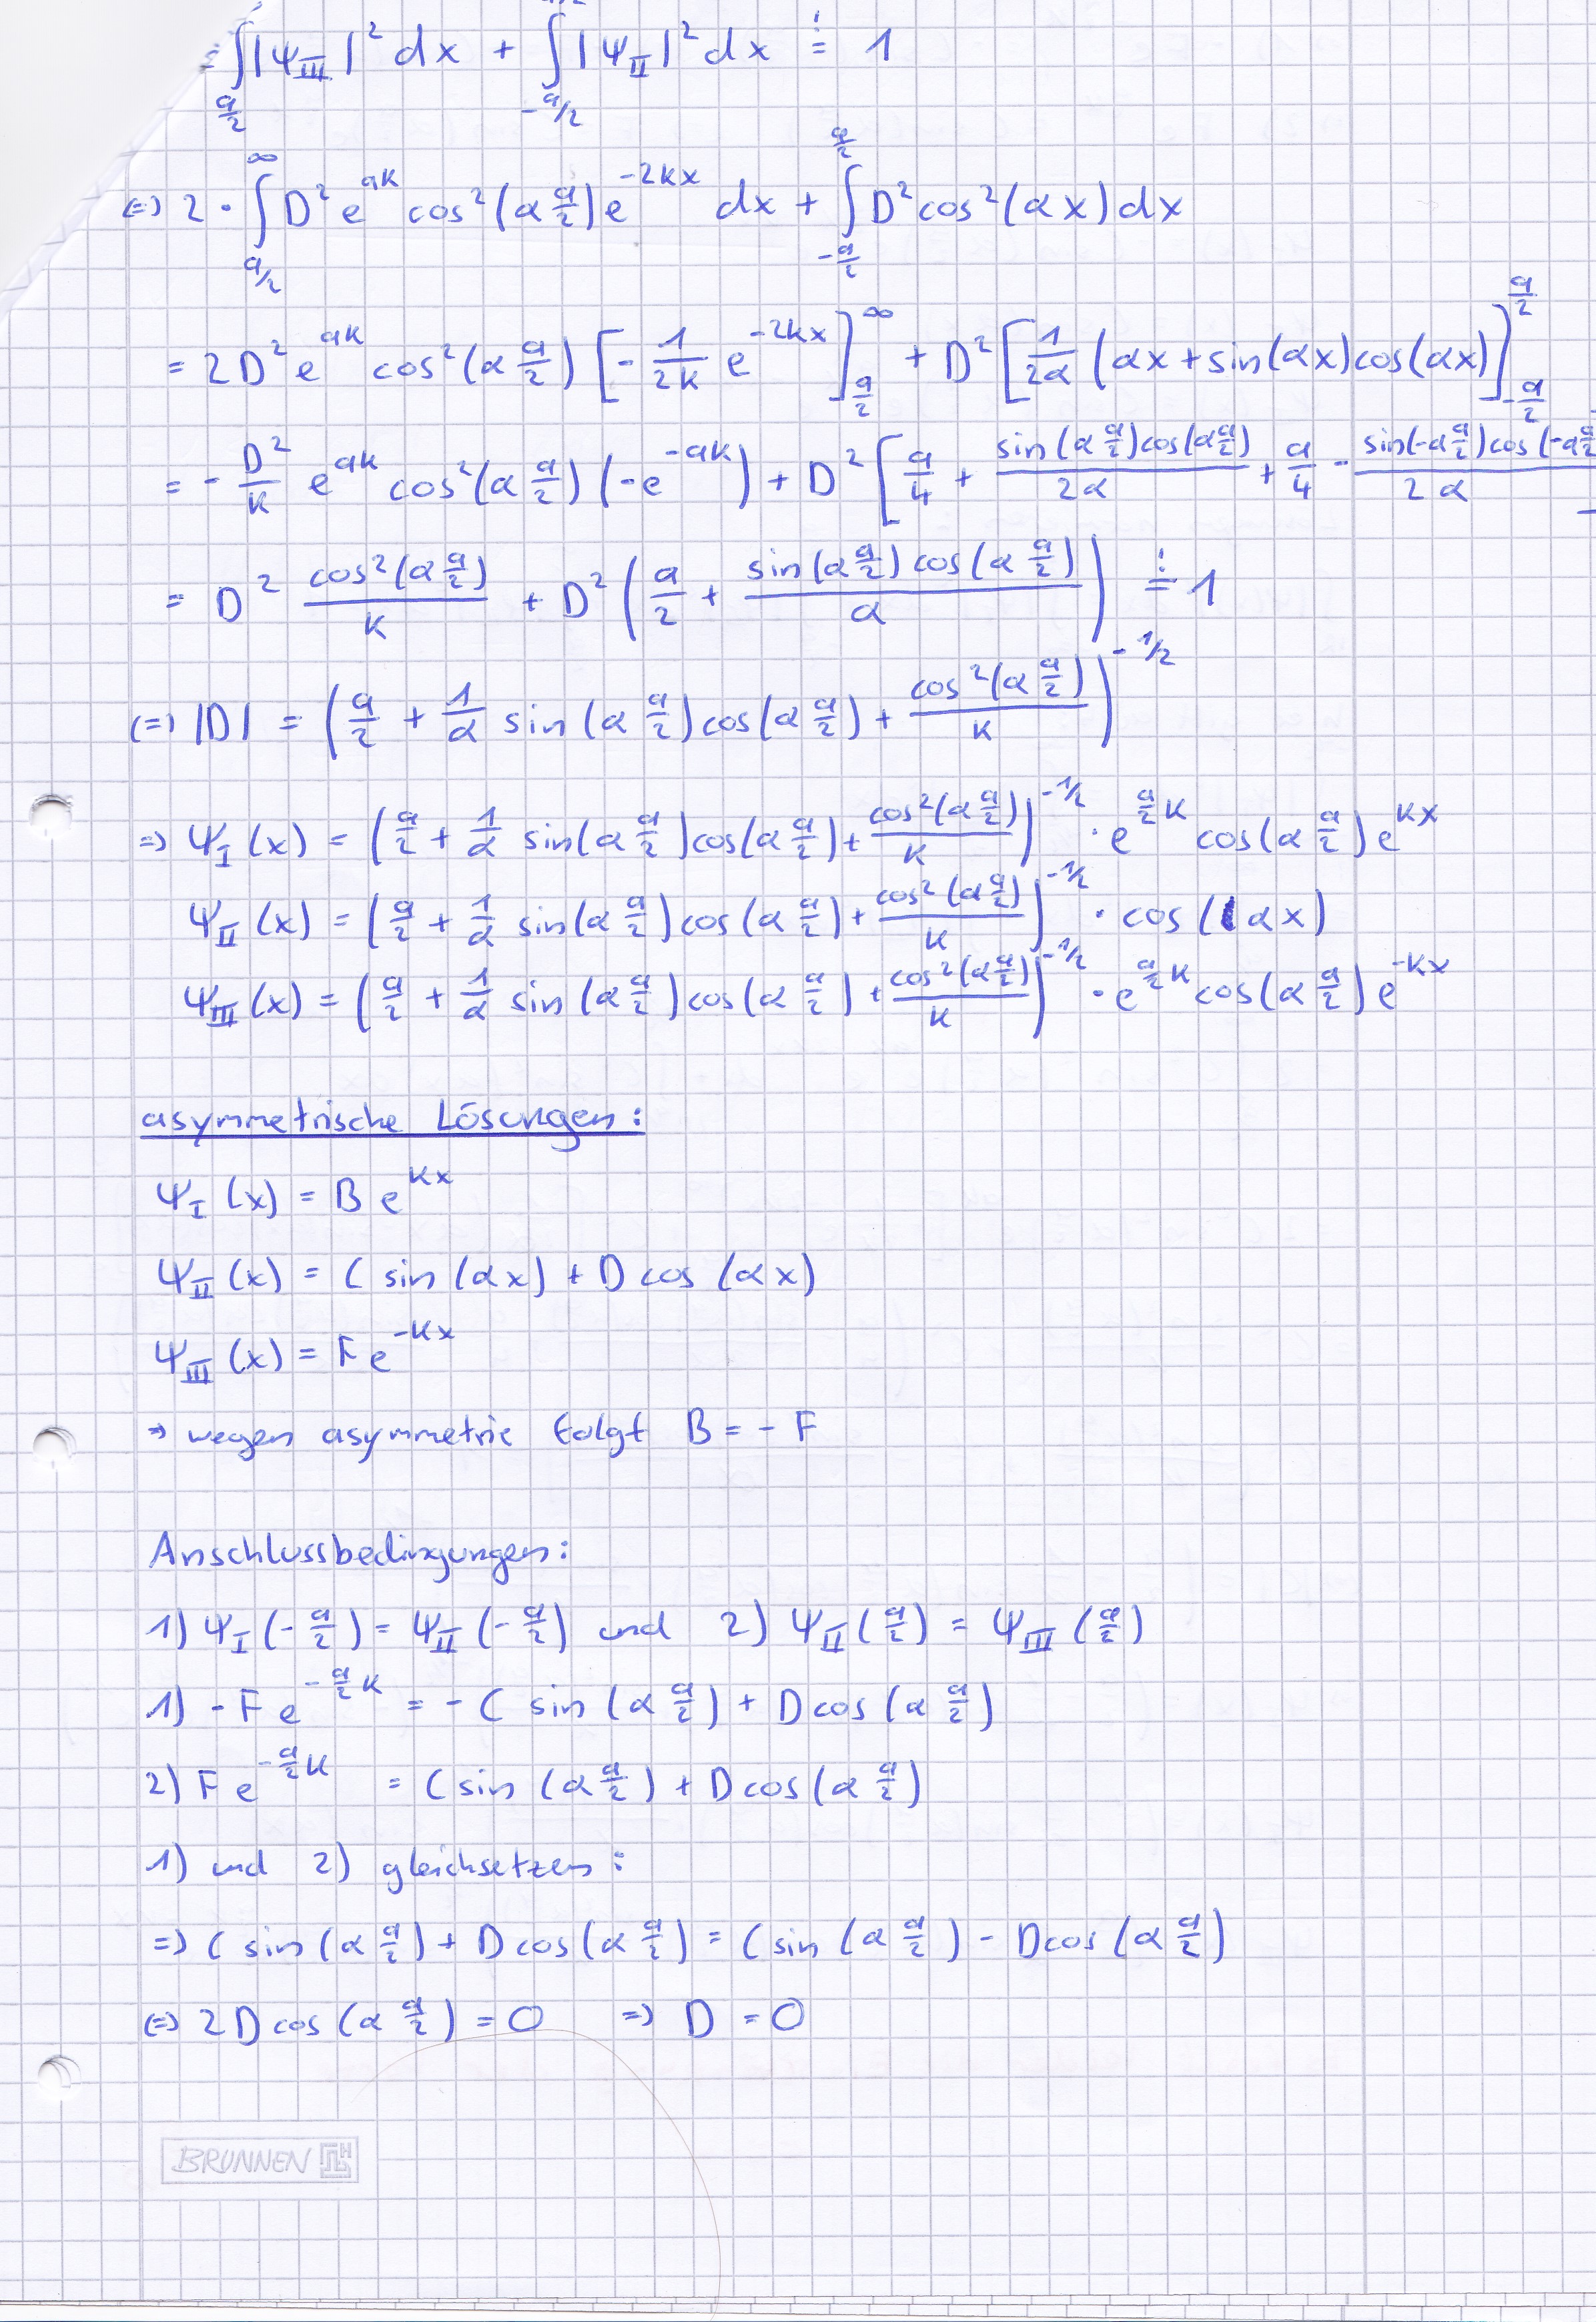 = ∫_{a/2} |ψ_III|² dx + ∫_{-a/2} |ψ_II|² dx =! 1
(=) 2 · ∫_{a/2}^{∞} D² e^{ak} cos²(α a/2) e^{-2kx} dx + ∫_{-a/2}^{a/2} D² cos²(αx) dx
= 2D² e^{ak} cos²(α a/2) [-1/2k e^{-2kx}]_{a/2}^{∞} + D² [1/2α (αx + sin(αx)cos(αx)]_{-a/2}^{a/2}
= - D²/k e^{ak} cos²(α a/2) (-e^{-ak}) + D² [a/4 + sin(α a/2)cos(α a/2)/2α + a/4 - sin(-α a/2)cos(-α a/2/2α
= D² cos²(α a/2)/k + D² (a/2 + sin(α a/2) cos(α a/2)/α) =! 1
(=) |D| = (a/2 + 1/α sin(α a/2)cos(α a/2) + cos²(α a/2)/k)^{-1/2}
=> ψ_I(x) = (a/2 + 1/α sin(α a/2)cos(α a/2) + cos²(α a/2)/k)^{-1/2} · e^{a/2 k} cos(α a/2) e^{kx}
ψ_II(x) = (a/2 + 1/α sin(α a/2)cos(α a/2) + cos²(α a/2)/k)^{-1/2} · cos(αx)
ψ_III(x) = (a/2 + 1/α sin(α a/2)cos(α a/2) + cos²(α a/2)/k)^{-1/2} · e^{a/2 k} cos(α a/2) e^{-kx}
asymmetrische Lösungen:
ψ_I(x) = B e^{kx}
ψ_II(x) = C sin(αx) + D cos(αx)
ψ_III(x) = F e^{-kx}
=> wegen asymmetrie folgt B = - F
Anschlussbedingungen:
1) ψ_I(-a/2) = ψ_II(-a/2) und 2) ψ_II(a/2) = ψ_III(a/2)
1) -F e^{-a/2 k} = -C sin(α a/2) + D cos(α a/2)
2) F e^{-a/2 k} = C sin(α a/2) + D cos(α a/2)
1) und 2) gleichsetzen:
=> C sin(α a/2) + D cos(α a/2) = C sin(α a/2) - D cos(α a/2)
(=> 2D cos(α a/2) = 0 => D = 0
BRUNNEN